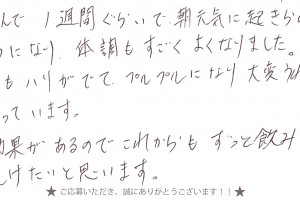 んで 1週間ぐらいで、朝元気に起きら
うになり、体調もすごく よくなりました。
もハリがでて、プルプルになり 大変うれ
っています。
効果があるので これからも ずっと飲み
しけたいと思います。
★ ご応募いただき、誠にありがとうございます！！★